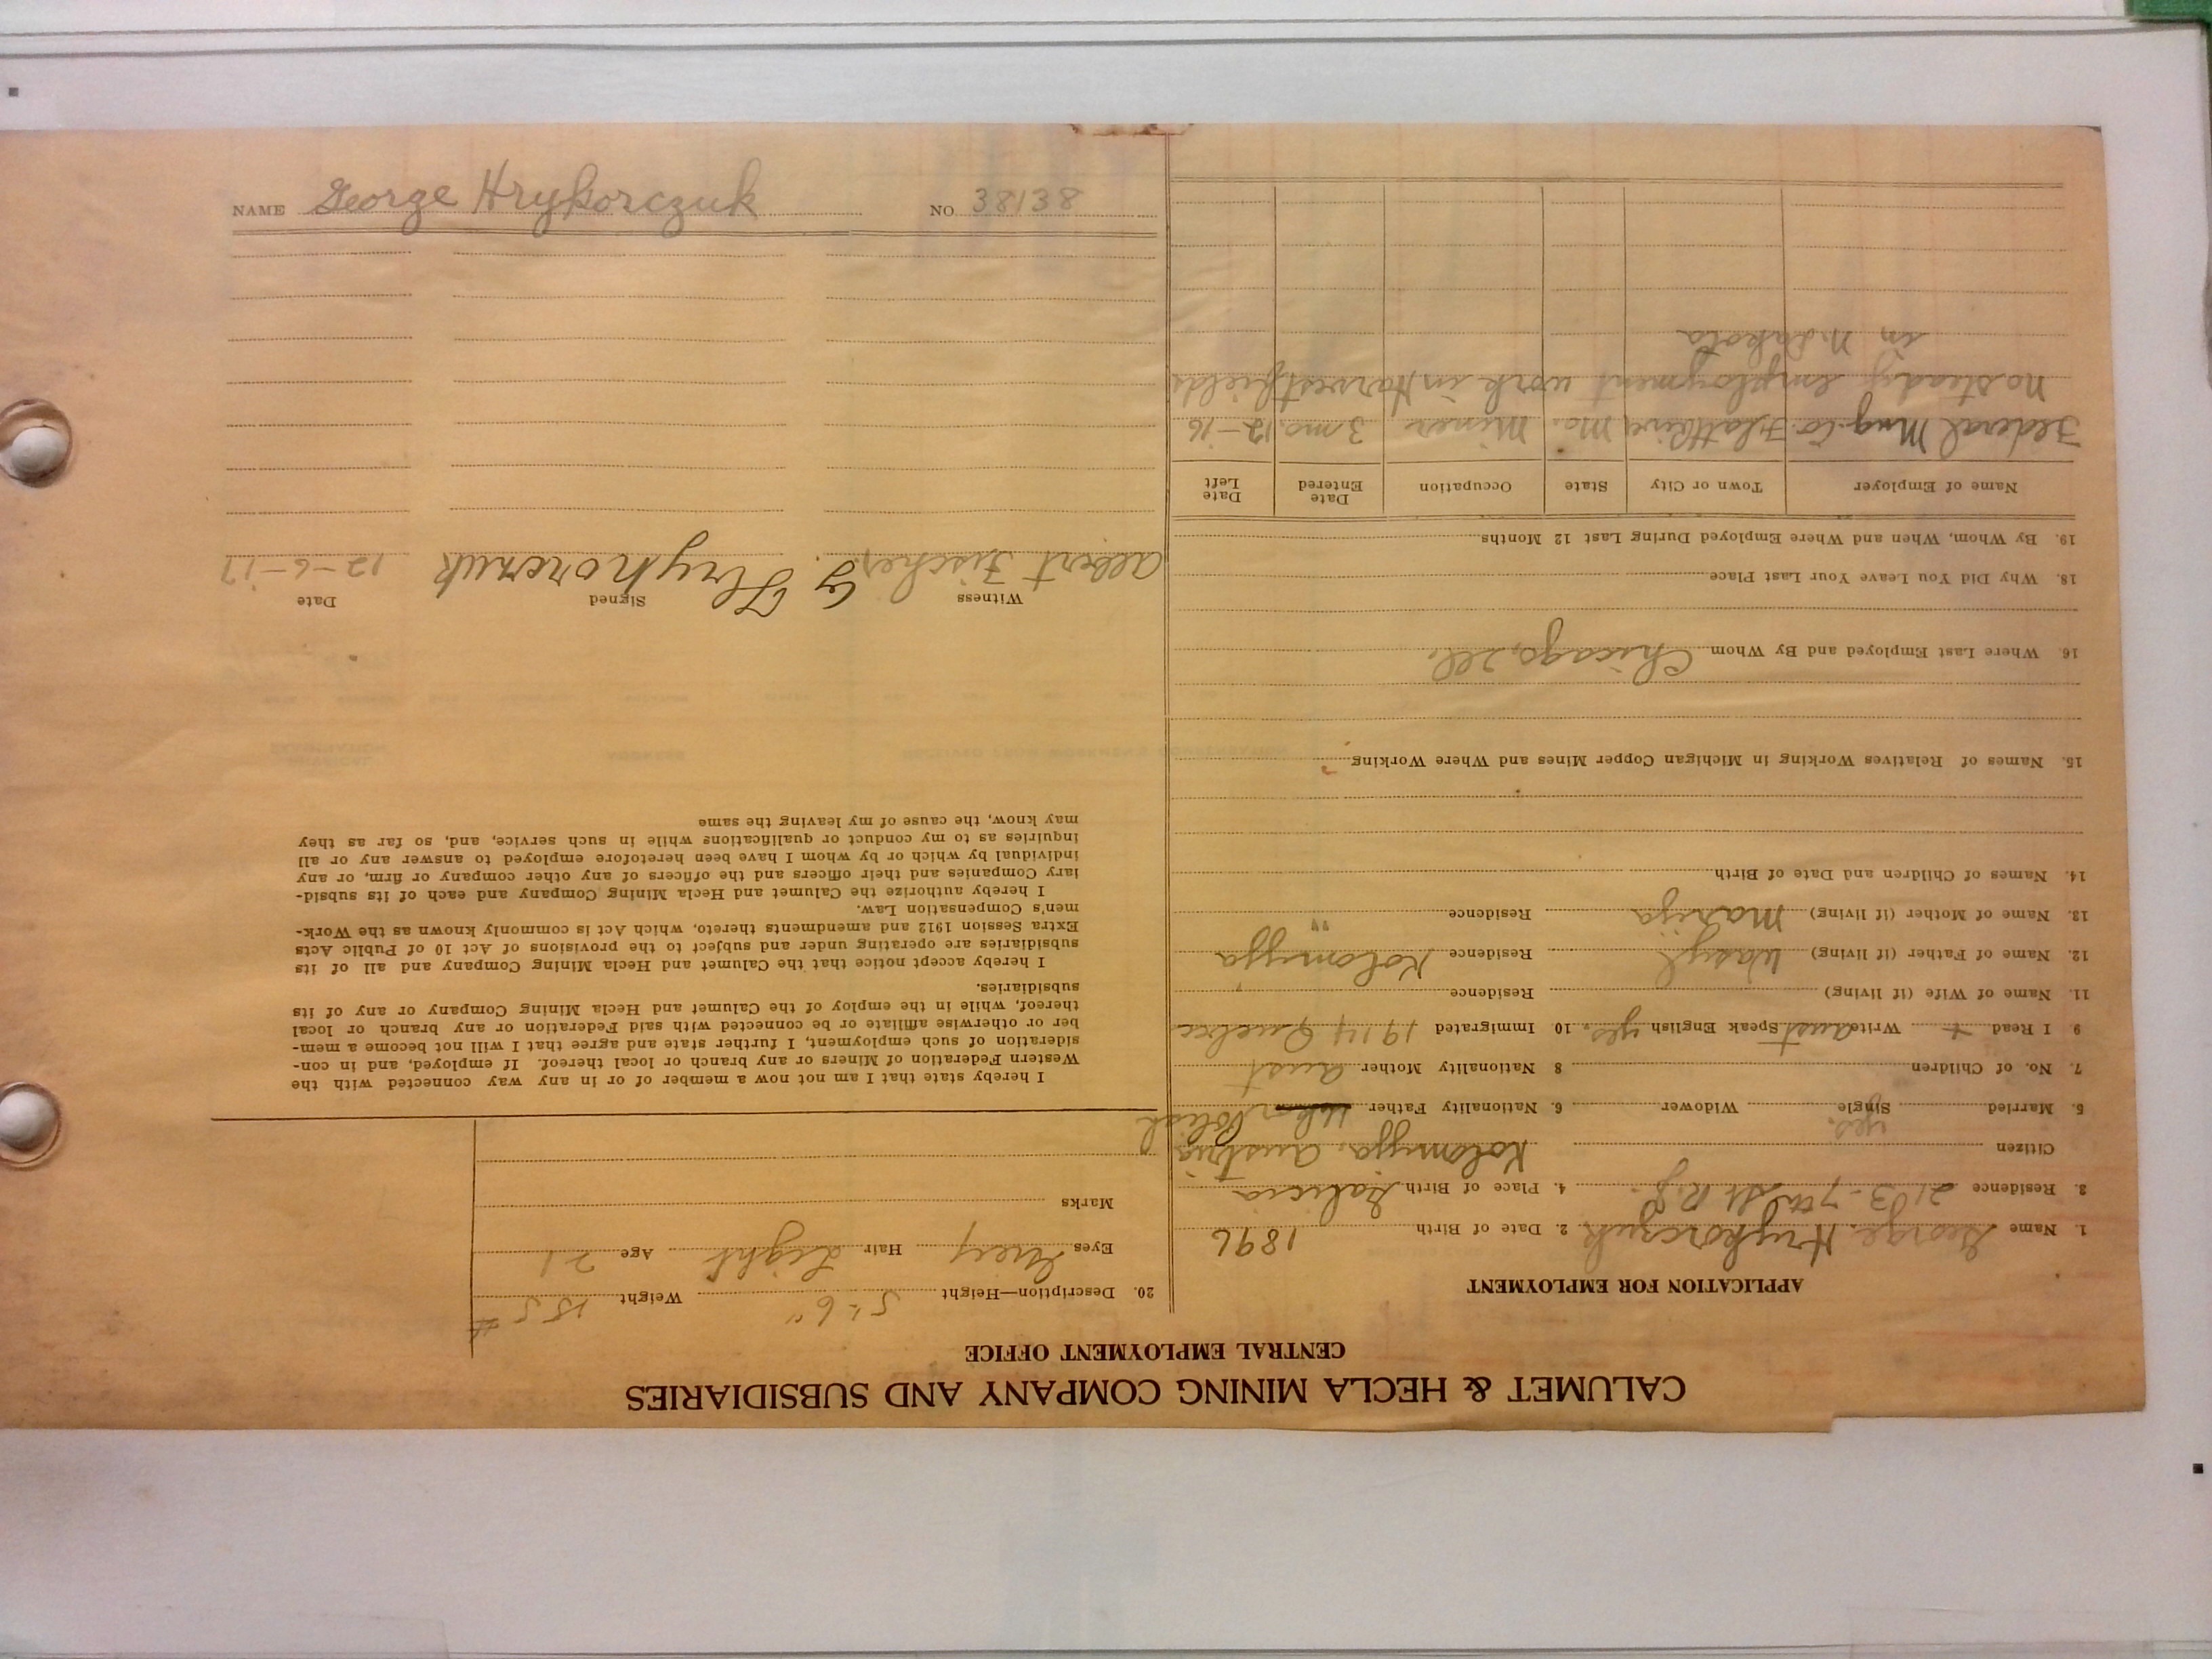 CALUMET & HECLA MINING COMPANY AND SUBSIDIARIES
CENTRAL EMPLOYMENT OFFICE
APPLICATION FOR EMPLOYMENT
1. Name George Hrykorczuk 2. Date of Birth 1896
3. Residence 2103-7th St 4. Place of Birth Galicia
Citizen Kolomyja, Austria
5. Married Single yes. Widower 6. Nationality Father Polish
7. No. of Children 8 Nationality Mother Aust
9 I Read + Write Aust Speak English yes. 10. Immigrated 1914 Quebec
11. Name of Wife (if living) Residence
12. Name of Father (if living) Wasyl Residence Kolomyja
13. Name of Mother (if living) Marija Residence " "
14. Names of Children and Date of Birth
15. Names of Relatives Working in Michigan Copper Mines and Where Working
16. Where Last Employed and By Whom Chicago, Ill.
18. Why Did You Leave Your Last Place
19. By Whom, When and Where Employed During Last 12 Months
Name of Employer Town or City State Occupation Date Entered Date Left
Federal Mng. Co Flatt River Mo. Miner 3 mo. 12-16
No steady employment work in Harvest fields
in N. Dakota
20. Description—Height 5'-6" Weight 155#
Eyes Grey Hair Light Age 21
Marks
I hereby state that I am not now a member of or in any way connected with the
Western Federation of Miners or any branch or local thereof. If employed, and in con-
sideration of such employment, I further state and agree that I will not become a mem-
ber or otherwise affiliate or be connected with said Federation or any branch or local
thereof, while in the employ of the Calumet and Hecla Mining Company or any of its
subsidiaries.
I hereby accept notice that the Calumet and Hecla Mining Company and all of its
subsidiaries are operating under and subject to the provisions of Act 10 of Public Acts
Extra Session 1912 and amendments thereto, which Act is commonly known as the Work-
men's Compensation Law.
I hereby authorize the Calumet and Hecla Mining Company and each of its subsid-
iary Companies and their officers and the officers of any other company or firm, or any
individual by which or by whom I have been heretofore employed to answer any or all
inquiries as to my conduct or qualifications while in such service, and, so far as they
may know, the cause of my leaving the same
Witness Signed Date
Albert Fischer G. Hryhorczuk 12-6-17
NAME George Hrykorczuk NO 38138